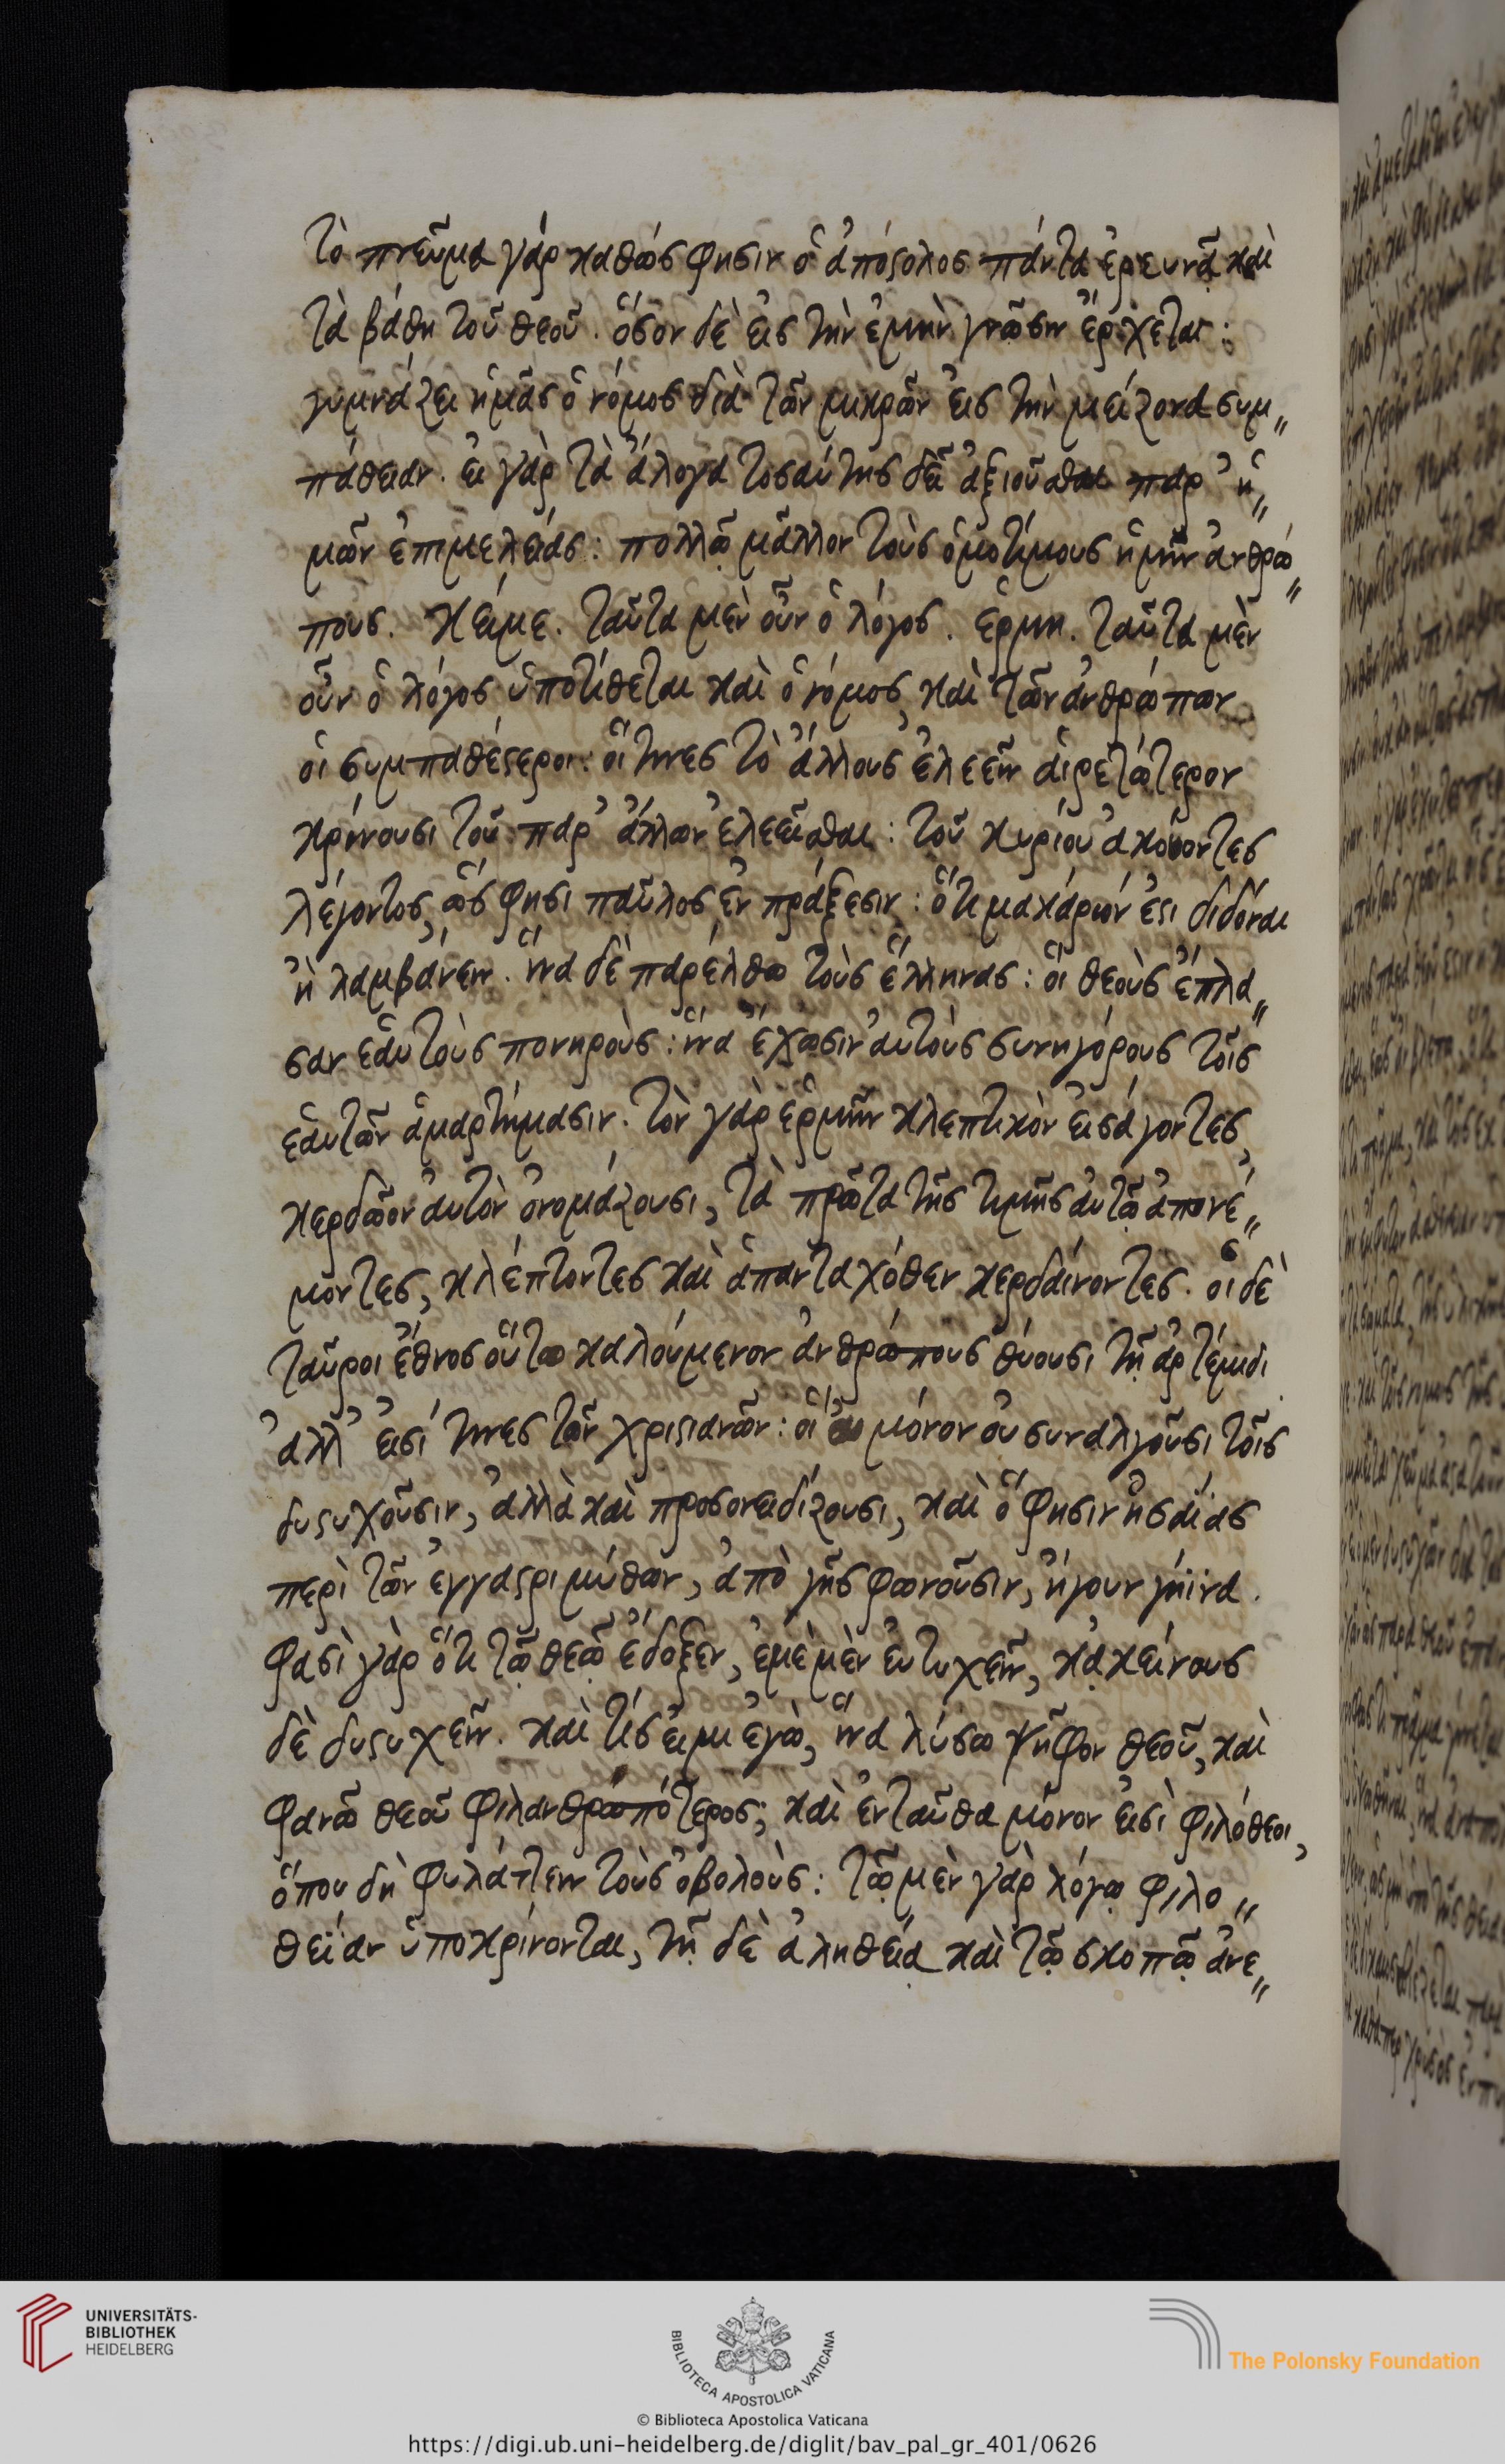 τὸ πνεῦμα γάρ καθώς φησιν ὁ ἀπόστολος πάντα ἐρευνᾷ καὶ
τὰ βάθη τοῦ θεοῦ. ὅσον δὲ εἰς τὴν ἐμὴν γνῶσιν ἔρχεται:
γυμνάζει ἡμᾶς ὁ νόμος διὰ τῶν μικρῶν εἰς τὴν μείζονα συμ„
πάθειαν. εἰ γὰρ τὰ ἄλογα τοσαύτης δεῖ ἀξιοῦσθαι παρ' ἡ„
μῶν ἐπιμελείας: πολλῷ μᾶλλον τοὺς ὁμοτίμους ἡμῖν ἀνθρώ„
πους. κείμε. ταῦτα μὲν οὖν ὁ λόγος. ἑρμη. ταῦτα μὲν
οὖν ὁ λόγος ὑποτίθεται καὶ ὁ νόμος, καὶ τῶν ἀνθρώπων
οἱ συμπαθέστεροι: οἵ τινες τὸ ἄλλους ἐλεεῖν αἱρετώτερον
κρίνουσι τοῦ παρ' ἄλλων ἐλεεῖσθαι: τοῦ κυρίου ἀκούοντες
λέγοντος, ὥς φησι παῦλος ἐν πράξεσιν: ὅτι μακάριόν ἐστι διδόναι
ἢ λαμβάνειν. ἵνα δὲ παρέλθω τοὺς ἕλληνας: οἳ θεοὺς ἔπλα„
σαν ἑαυτοὺς πονηροὺς: ἵνα ἔχωσιν αὐτοὺς συνηγόρους τοῖς
ἑαυτῶν ἁμαρτήμασιν. τὸν γὰρ ἑρμῆν κλεπτικὸν εἰσάγοντες,
κερδῶον αὐτὸν ὀνομάζουσι, τὰ πρῶτα τῆς τιμῆς αὐτῷ ἀπονέ„
μοντες, κλέπτοντες καὶ ἁπανταχόθεν κερδαίνοντες. οἱ δὲ
ταῦροι ἔθνος οὕτω καλούμενον ἀνθρώπους θύουσι τῇ ἀρτέμιδι.
ἀλλ' εἰσί τινες τῶν χριστιανῶν: οἳ οὐ μόνον οὐ συναλγοῦσι τοῖς
δυστυχοῦσιν, ἀλλὰ καὶ προσονειδίζουσι, καὶ ὅ φησιν ἡσαΐας
περὶ τῶν ἐγγαστριμύθων, ἀπὸ γῆς φωνοῦσιν, ἤγουν γήϊνα.
φασὶ γὰρ ὅτι τῷ θεῷ ἔδοξεν, ἐμὲ μὲν εὐτυχεῖν, κᾀκείνους
δὲ δυστυχεῖν. καὶ τίς εἰμι ἐγὼ, ἵνα λύσω ψῆφον θεοῦ, καὶ
φανῶ θεοῦ φιλανθρωπότερος; καὶ ἐνταῦθα μόνον εἰσὶ φιλόθεοι,
ὅπου δὴ φυλάττειν τοὺς ὀβολοὺς: τῷ μὲν γὰρ λόγῳ φιλο„
θεΐαν ὑποκρίνονται, τῇ δὲ ἀληθείᾳ καὶ τῷ σκοπῷ ἀνε„
UNIVERSITÄTS-
BIBLIOTHEK
HEIDELBERG
BIBLIOTECA APOSTOLICA VATICANA
The Polonsky Foundation
© Biblioteca Apostolica Vaticana
https://digi.ub.uni-heidelberg.de/diglit/bav_pal_gr_401/0626